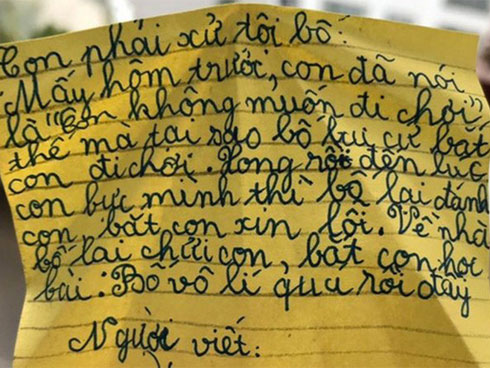 Con phải xử tội bố:
"Mấy hôm trước, con đã nói
là "Con không muốn đi chơi"
thế mà tại sao bố lại cứ bắt
con đi chơi. Xong rồi đến lúc
con bực mình thì bố lại đánh
con, bắt con xin lỗi. Về nhà
bố lại chửi con, bắt con học
bài: Bố vô lí quá rồi đấy
Người viết: